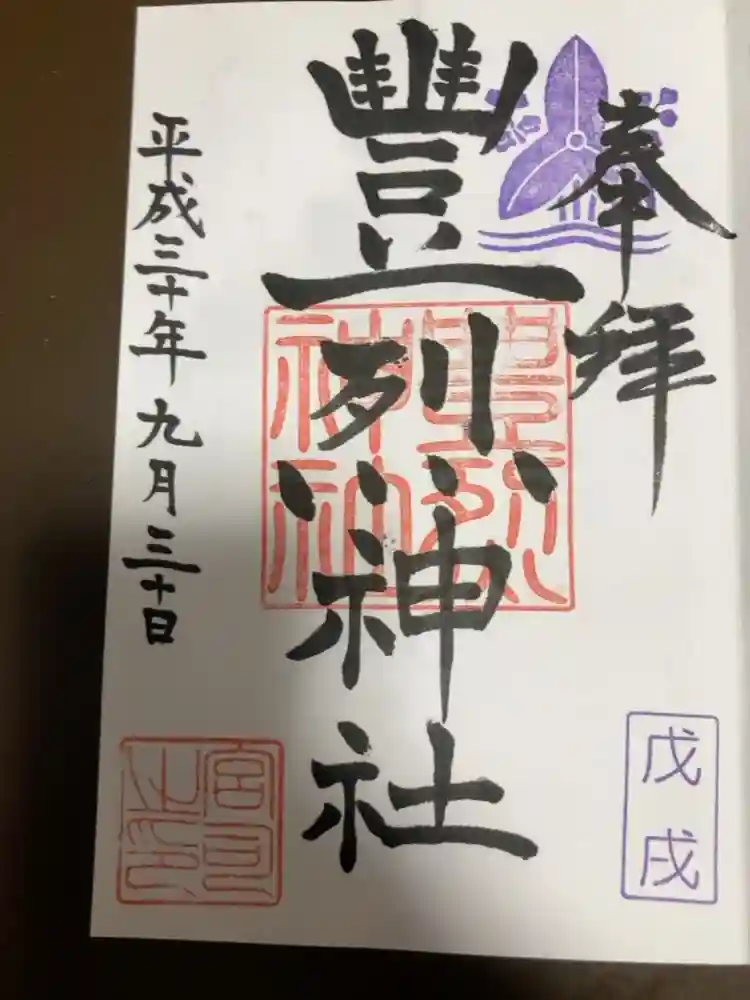 奉拝
豐烈神社
豐烈
神社
平成三十年九月三十日
戊戌
宮司
之印